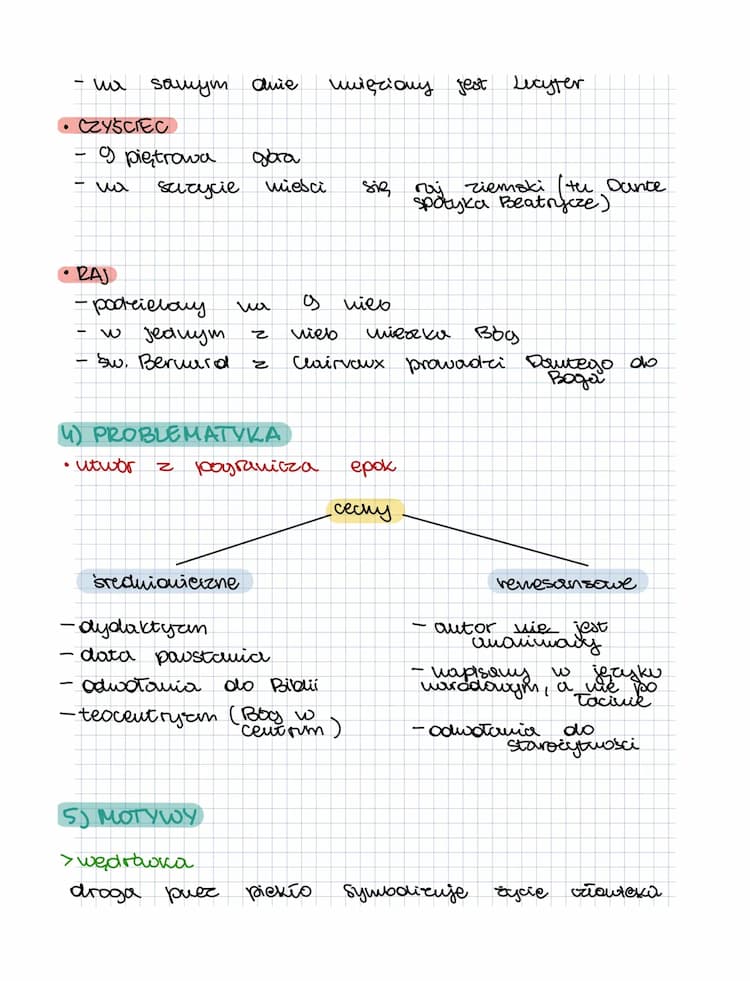 - na samym dnie uwięziony jest Lucyfer
• CZYŚCIEC
- 9 piętrowa góra
- na szczycie mieści się raj ziemski (tu Dante
spotyka Beatrycze)
• RAJ
- podzielony na 9 nieb
- w jednym z nieb mieszka Bóg
- św. Bernard z Clairvaux prowadzi Dantego do
Boga
4) PROBLEMATYKA
• utwór z pogranicza epok
cechy
średniowieczne
renesansowe
- dydaktyzm
- data powstania
- odwołania do Biblii
- teocentryzm (Bóg w
centrum)
- autor nie jest
anonimowy
- napisany w języku
narodowym, a nie po
łacinie
- odwołania do
starożytności
5) MOTYWY
> wędrówka
droga przez piekło symbolizuje życie człowieka